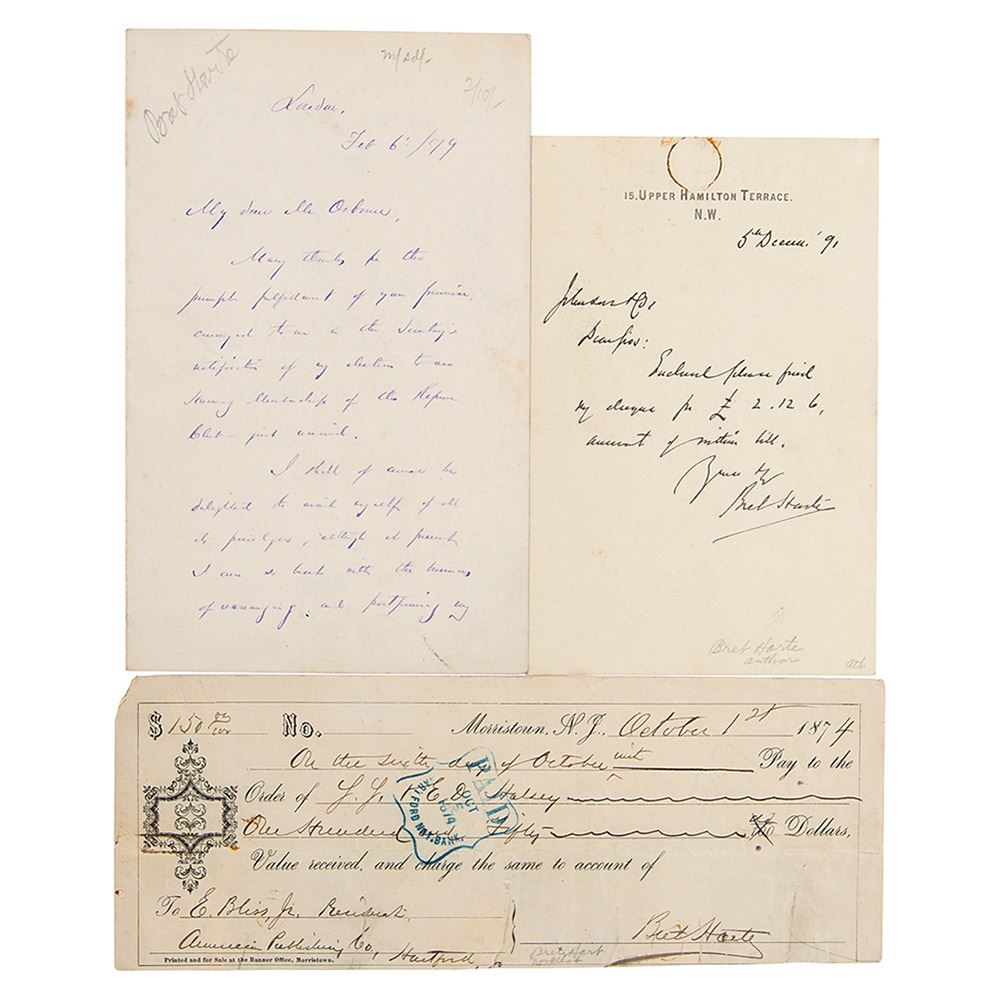 Bret Harte
London,
Feb 6 /79
My dear Mr Osborne,
Many thanks for the
prompt fulfillment of your promise
conveyed to me in the Secretary's
notification of my election to an
Honorary Membership of the Reform
Club — just received.
I shall of course be
delighted to avail myself of all
its privileges, although at present
I am so busy with the business
of arranging and postponing my
15, UPPER HAMILTON TERRACE.
N.W.
5th Decem. '91
Johnson & Co,
Dear Sirs:
Enclosed please find
my cheque for £ 2.12 6,
amount of within bill.
Yours
Bret Harte
Bret Harte
author
$ 150 00/100 No. Morristown, N.J., October 1st 1874
On the sixth day of October inst Pay to the
Order of E. D. Halsey
One Hundred and Fifty Dollars,
Value received, and charge the same to account of
To E. Bliss, Jr. President,
American Publishing Co, Hartford
Bret Harte
Printed and for Sale at the Banner Office, Morristown.
PAID
OCT
1874
HARTFORD NAT. BANK.
Bret Hart